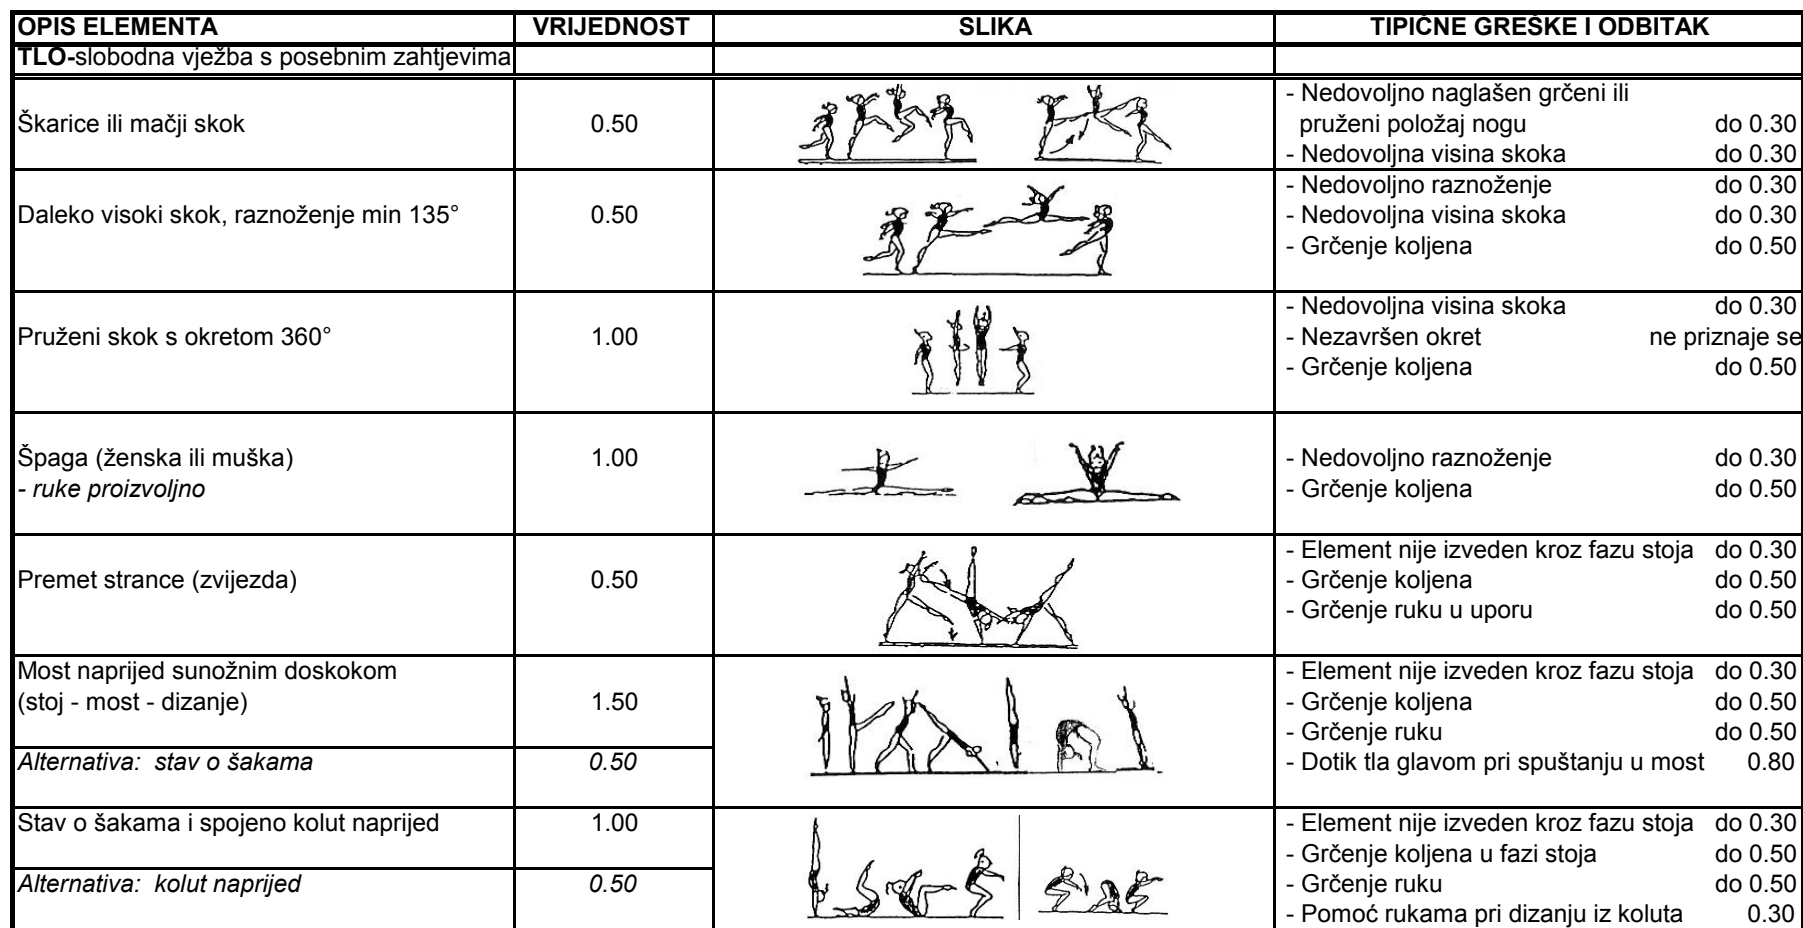 OPIS ELEMENTA VRIJEDNOST SLIKA TIPIČNE GREŠKE I ODBITAK
TLO-slobodna vježba s posebnim zahtjevima
Škarice ili mačji skok 0.50
- Nedovoljno naglašen grčeni ili
pruženi položaj nogu do 0.30
- Nedovoljna visina skoka do 0.30
Daleko visoki skok, raznoženje min 135° 0.50
- Nedovoljno raznoženje do 0.30
- Nedovoljna visina skoka do 0.30
- Grčenje koljena do 0.50
Pruženi skok s okretom 360° 1.00
- Nedovoljna visina skoka do 0.30
- Nezavršen okret ne priznaje se
- Grčenje koljena do 0.50
Špaga (ženska ili muška) 1.00
- ruke proizvoljno
- Nedovoljno raznoženje do 0.30
- Grčenje koljena do 0.50
Premet strance (zvijezda) 0.50
- Element nije izveden kroz fazu stoja do 0.30
- Grčenje koljena do 0.50
- Grčenje ruku u uporu do 0.50
Most naprijed sunožnim doskokom
(stoj - most - dizanje) 1.50
Alternativa: stav o šakama 0.50
- Element nije izveden kroz fazu stoja do 0.30
- Grčenje koljena do 0.50
- Grčenje ruku do 0.50
- Dotik tla glavom pri spuštanju u most 0.80
Stav o šakama i spojeno kolut naprijed 1.00
Alternativa: kolut naprijed 0.50
- Element nije izveden kroz fazu stoja do 0.30
- Grčenje koljena u fazi stoja do 0.50
- Grčenje ruku do 0.50
- Pomoć rukama pri dizanju iz koluta 0.30